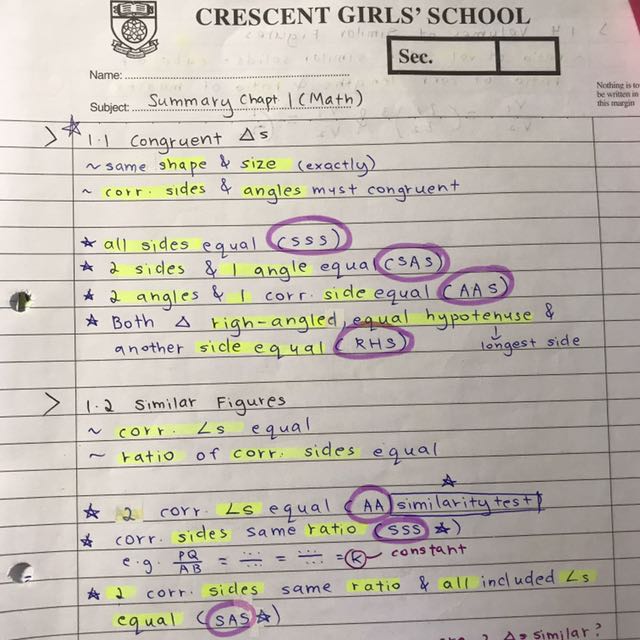 CRESCENT GIRLS' SCHOOL
Sec.
Name:
Nothing is to
be written in
this margin
Subject: Summary Chapt 1 (Math)
> ☆ 1.1 Congruent Δs
~ same shape & size (exactly)
~ corr. sides & angles must congruent
★ all sides equal (SSS)
★ 2 sides & 1 angle equal (SAS)
★ 2 angles & 1 corr. side equal (AAS)
★ Both Δ righ-angled, equal hypotenuse &
another side equal (RHS)
longest side
> 1.2 Similar Figures
~ corr. ∠s equal
~ ratio of corr. sides equal
★ 2 corr. ∠s equal (AA similarity test)
★ corr. sides same ratio (SSS ★)
e.g. PQ/AB = ... = ... = k – constant
★ 2 corr. sides same ratio & all included ∠s
equal (SAS ★)
Δs similar?